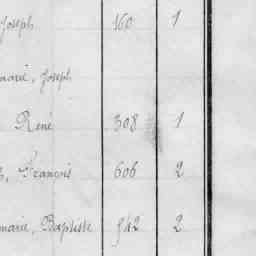 Joseph 160 1
marie, Joseph
René 308 1
François 606 2
marie, Baptiste 942 2